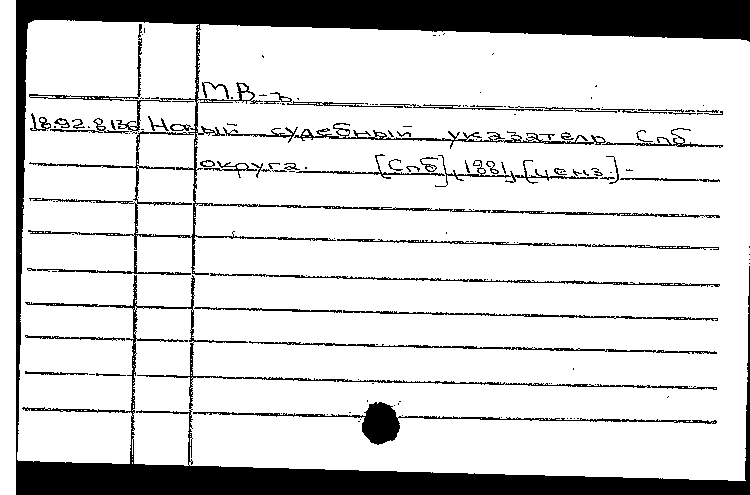 М.В-ъ.
18.92.8.136 Новый судебный указатель Спб.
округа. [Спб], 1881, [ценз.] -